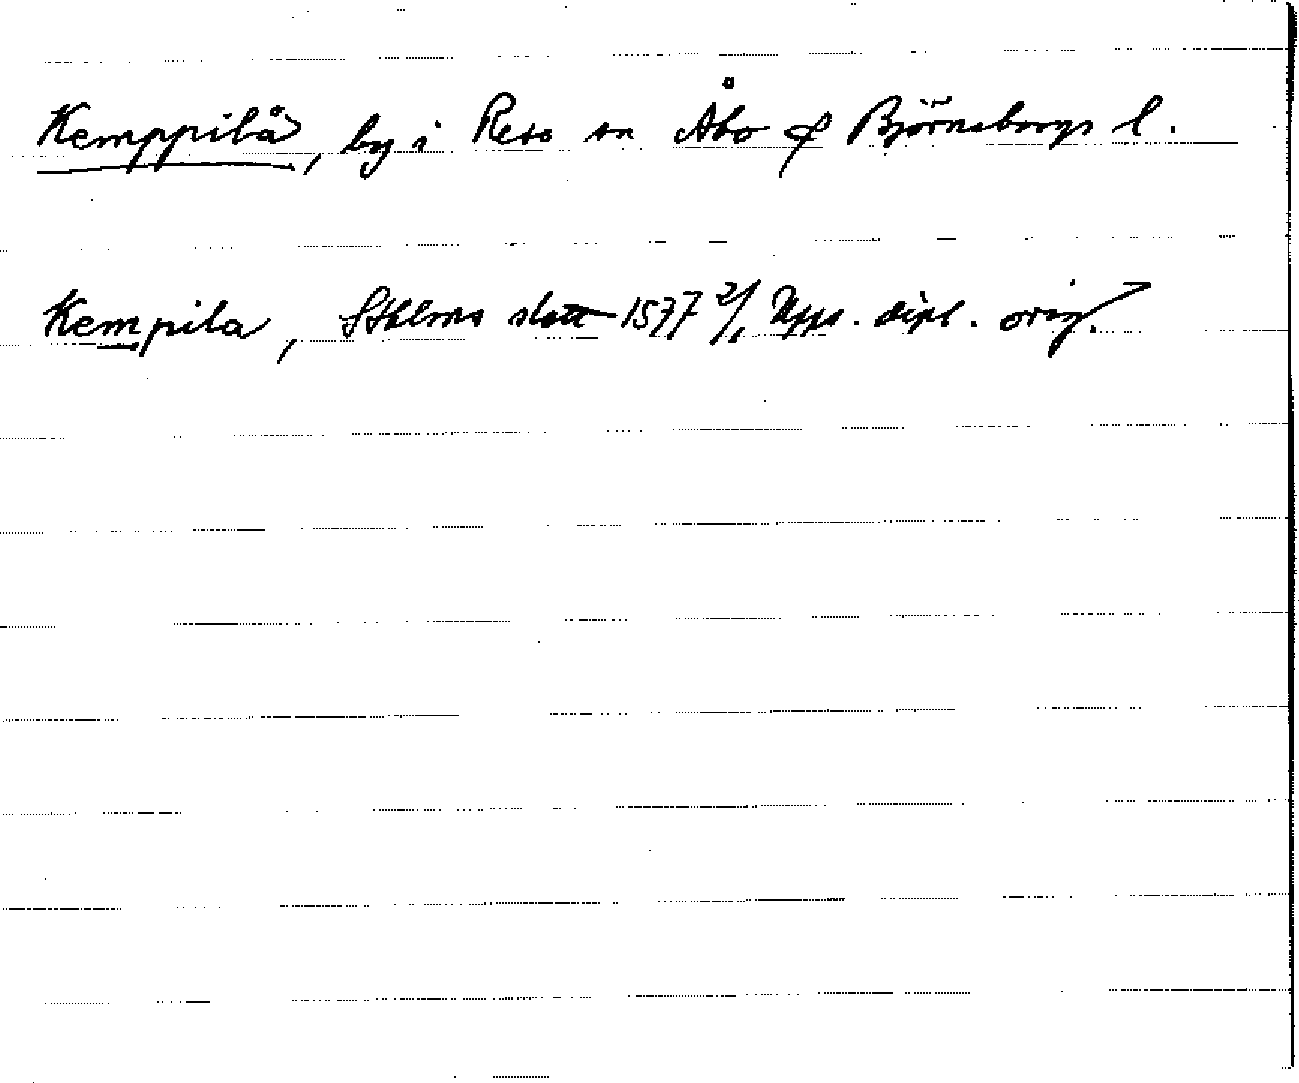 Kemppilä, by i Reso sn Åbo & Björneborgs l.
Kempila, Sthlms slott 1577 2/1 Upps. dipl. orig.